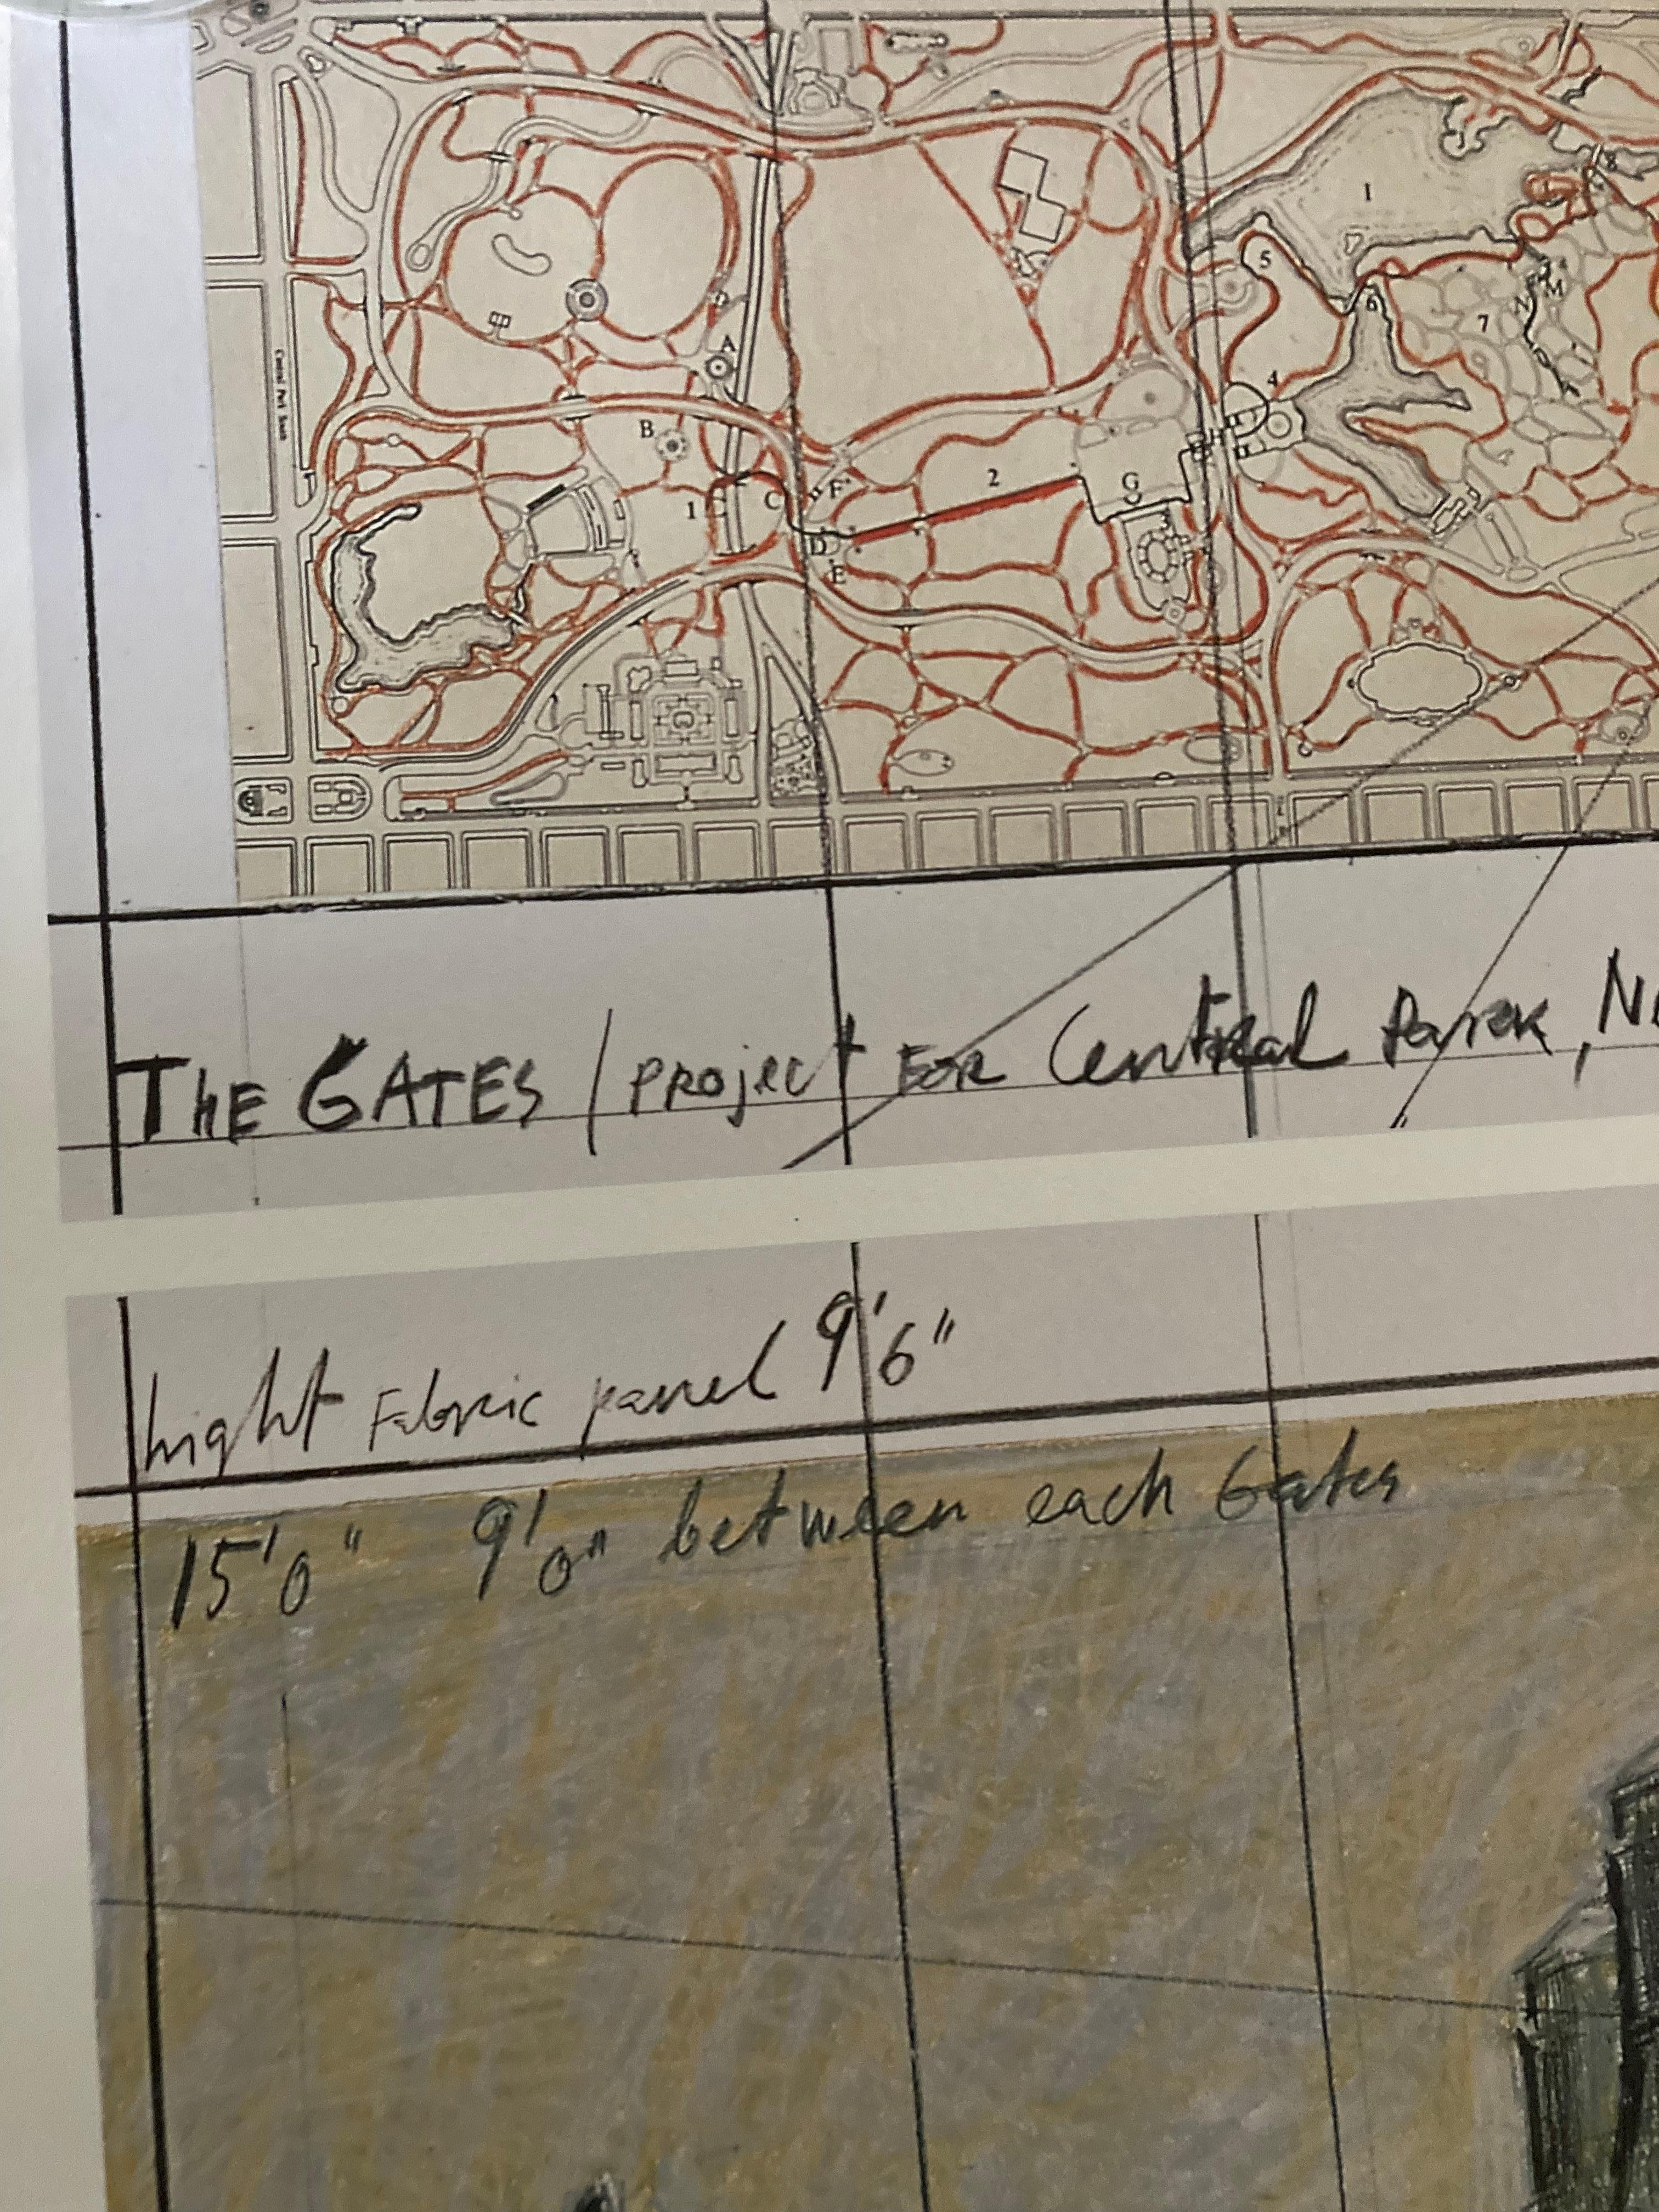 I
8
5
6
7
N
M
4
A
B
2
H
1
C
F
G
3
D
E
Central Park South
THE GATES / PROJECT FOR Central PARK, N
hight Fabric panel 9'6"
15'0" 9'0" between each Gates